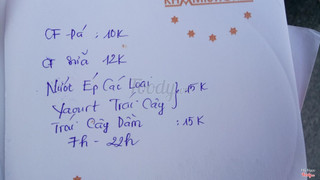 CF Đá : 10K
CF Sữa 12K
Nước Ép Các Loại
Yaourt Trái Cây } : 15K
Trái Cây Dầm : 15K
7h - 22h
Foody